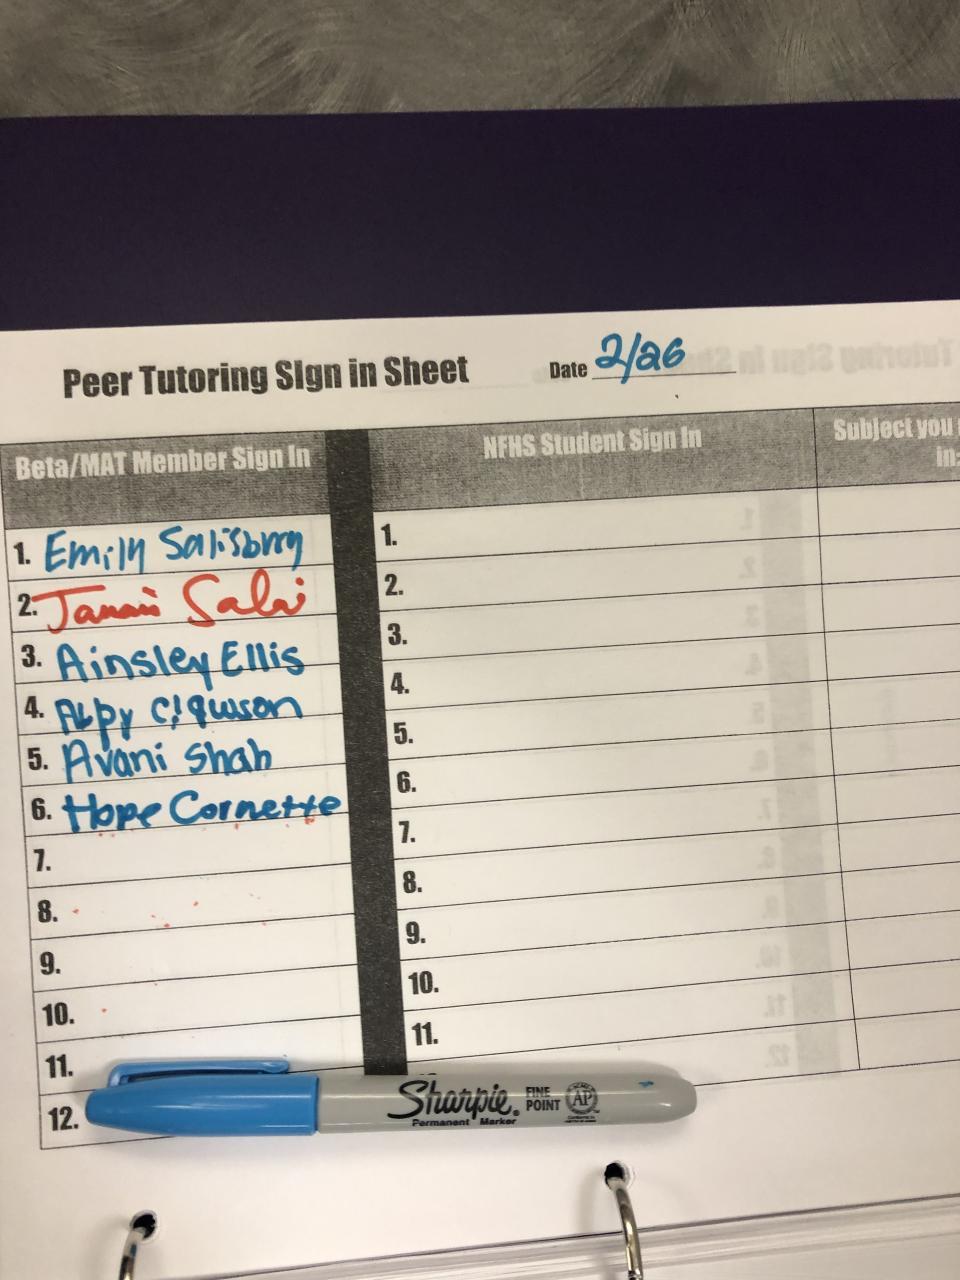 Peer Tutoring SIgn in Sheet Date 2/26
Beta/MAT Member Sign In NFHS Student Sign In Subject you
in:
1. Emily Salisbury 1.
2. Sabi 2.
3. Ainsley Ellis 3.
4. 4.
5. Avani Shah 5.
6. Hope Cornette 6.
7. 7.
8. 8.
9. 9.
10. 10.
11. 11.
12.
Sharpie. FINE POINT AP
Permanent Marker